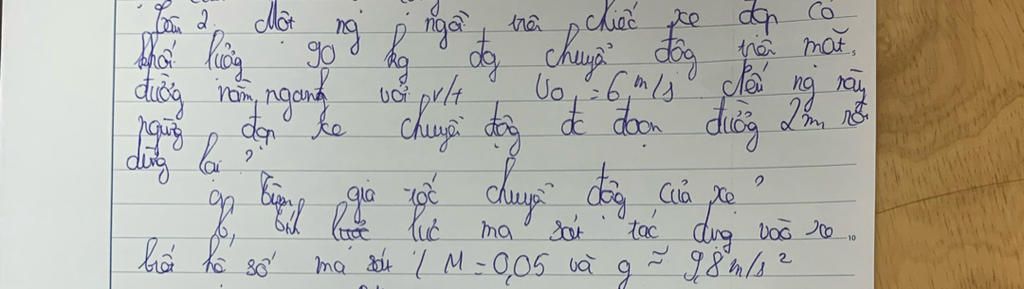 Bài 2. Một ng ngồi trên chiếc xe đạp có
khối lượng 90 kg đg chuyể động trên mặt
đường nằm ngang với v/t U₀ = 6 m/s. Nếu ng này
ngừng đạp xe chuyể động đc đoạn đường 2m rồi
dừng lại?
a, gia tốc chuyể động của xe?
b, lực ma sát tác dụng vào xe.
hệ số ma sát M = 0,05 và g ≈ 9,8 m/s²